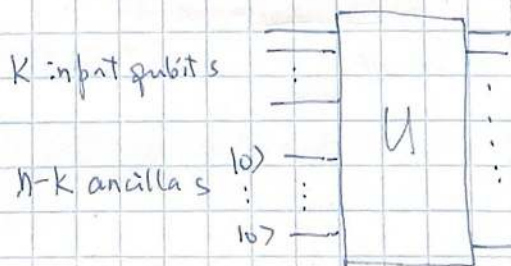 K input qubits
U
n-K ancillas |0>
|0>